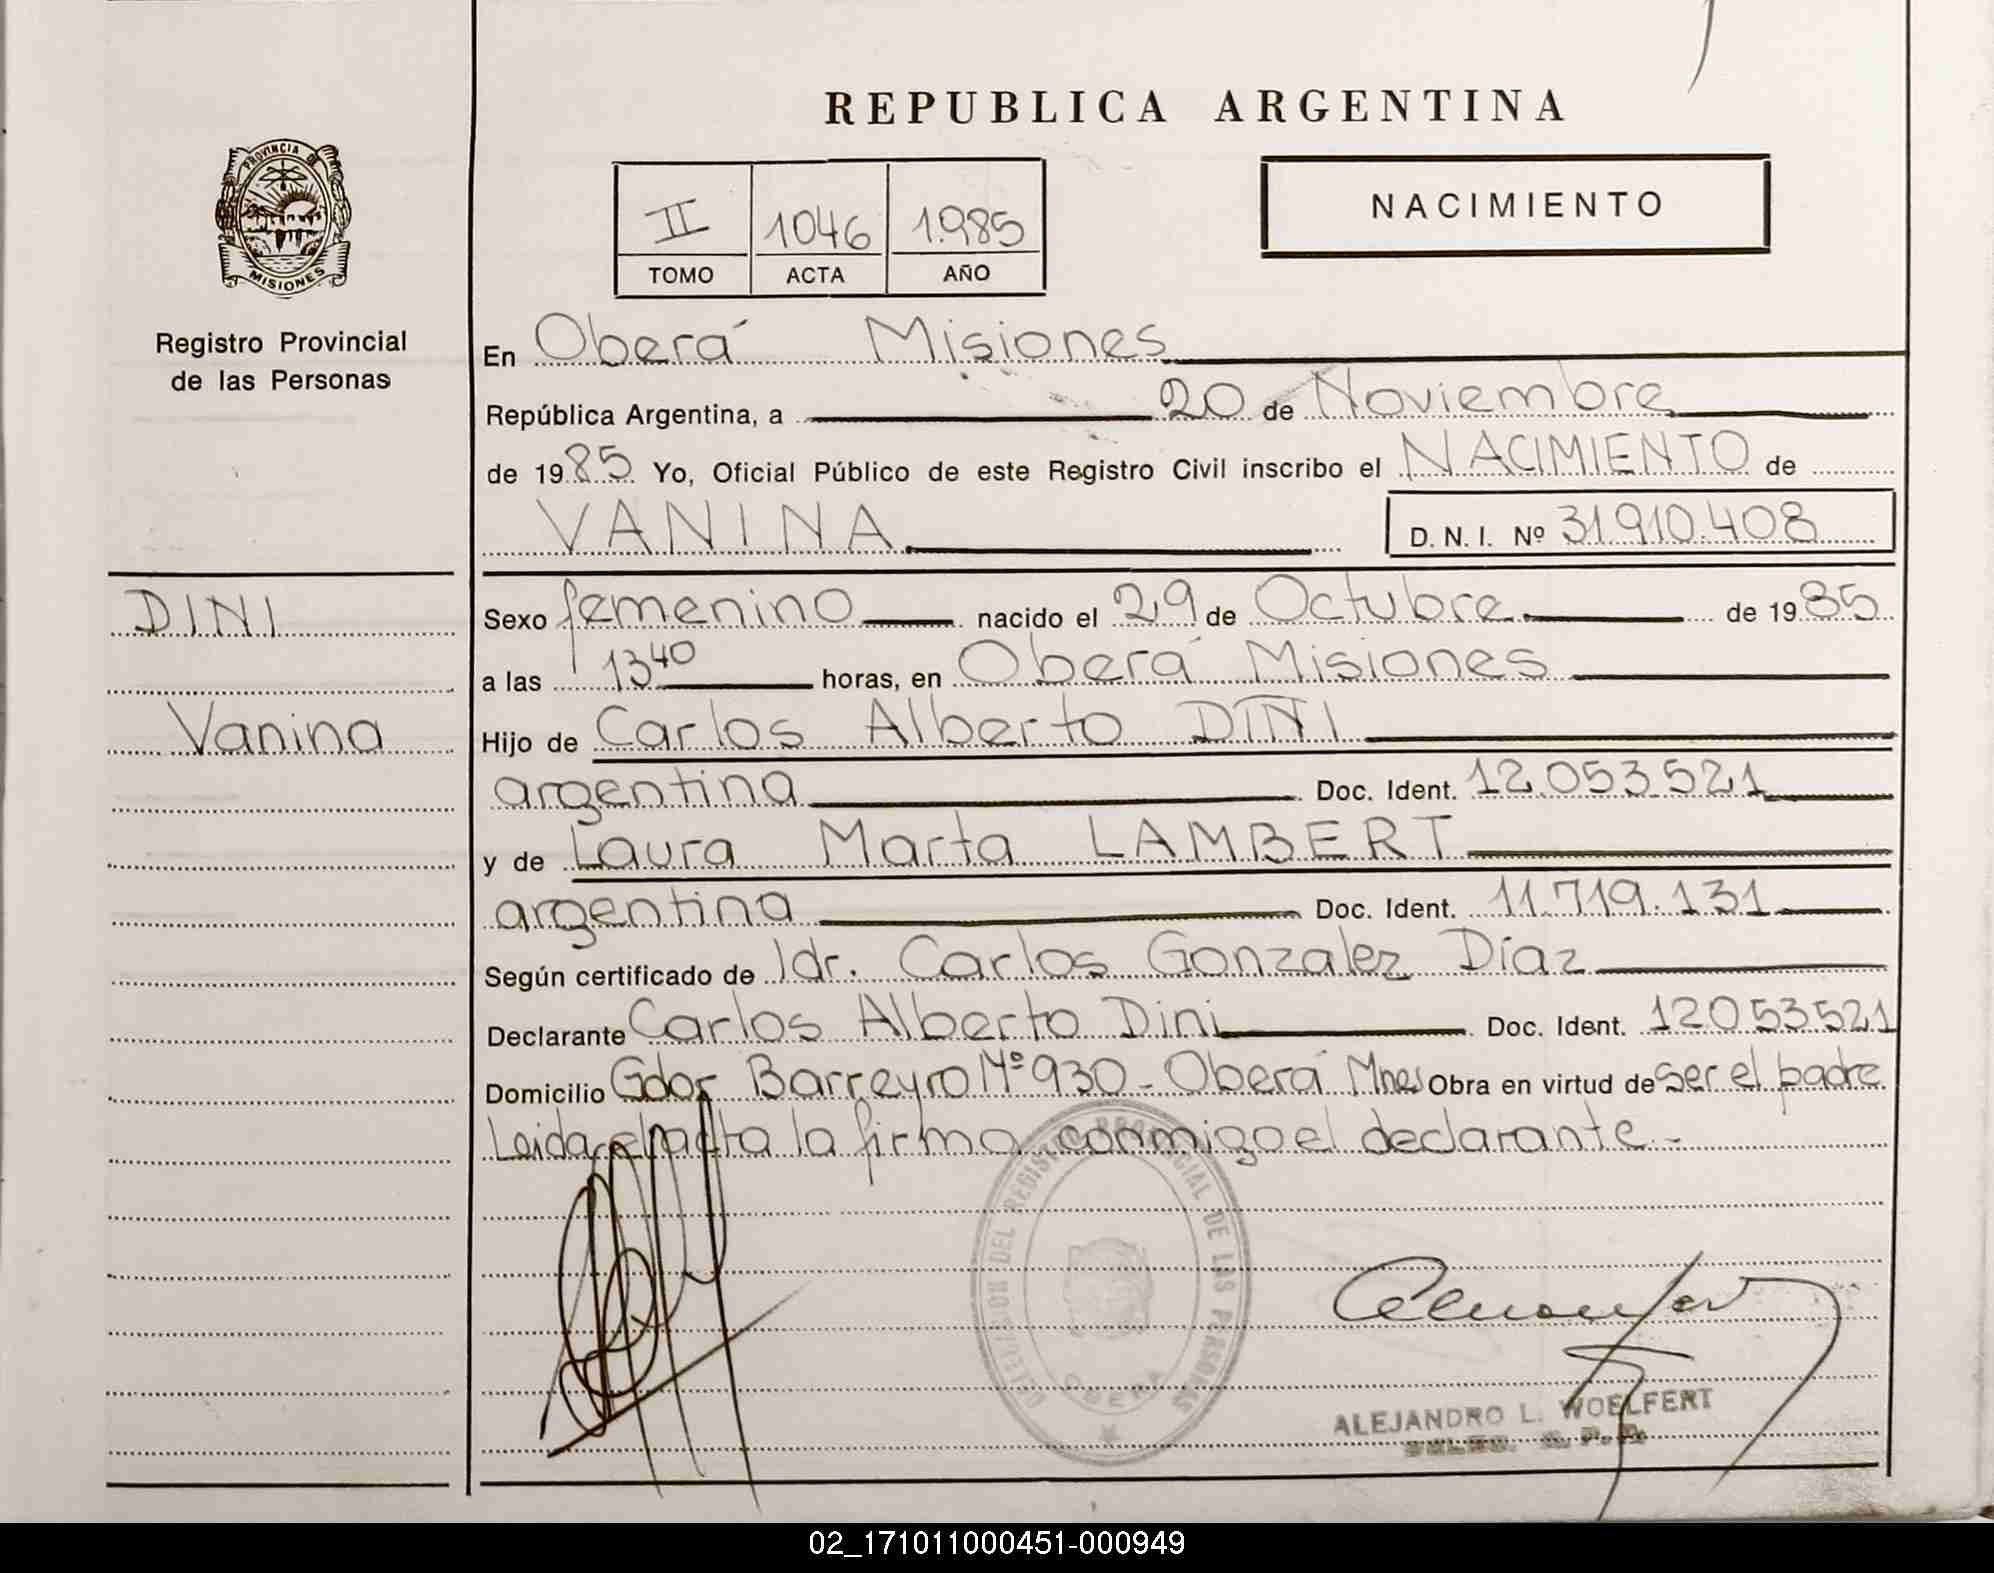 REPUBLICA ARGENTINA
PROVINCIA DE
MISIONES
Registro Provincial
de las Personas
II 1046 1.985
TOMO ACTA AÑO
NACIMIENTO
En Oberá Misiones
República Argentina, a 20 de Noviembre
de 1985 Yo, Oficial Público de este Registro Civil inscribo el NACIMIENTO de
VANINA D. N. I. Nº 31.910.408
DINI
Vanina
Sexo femenino nacido el 29 de Octubre de 1985
a las 13 40 horas, en Oberá Misiones
Hijo de Carlos Alberto DINI
argentina Doc. Ident. 12.053.521
y de Laura Marta LAMBERT
argentina Doc. Ident. 11.719.131
Según certificado de Carlos Gonzalez Díaz
Declarante Carlos Alberto Dini Doc. Ident. 12053521
Domicilio Gdor Barreyro Nº 930 - Oberá Mnes Obra en virtud de ser el padre
Leida el acta la firma conmigo el declarante.-
DELEGACION DEL REGISTRO PROVINCIAL DE LAS PERSONAS
OBERA
ALEJANDRO L. WOELFERT
02_171011000451-000949